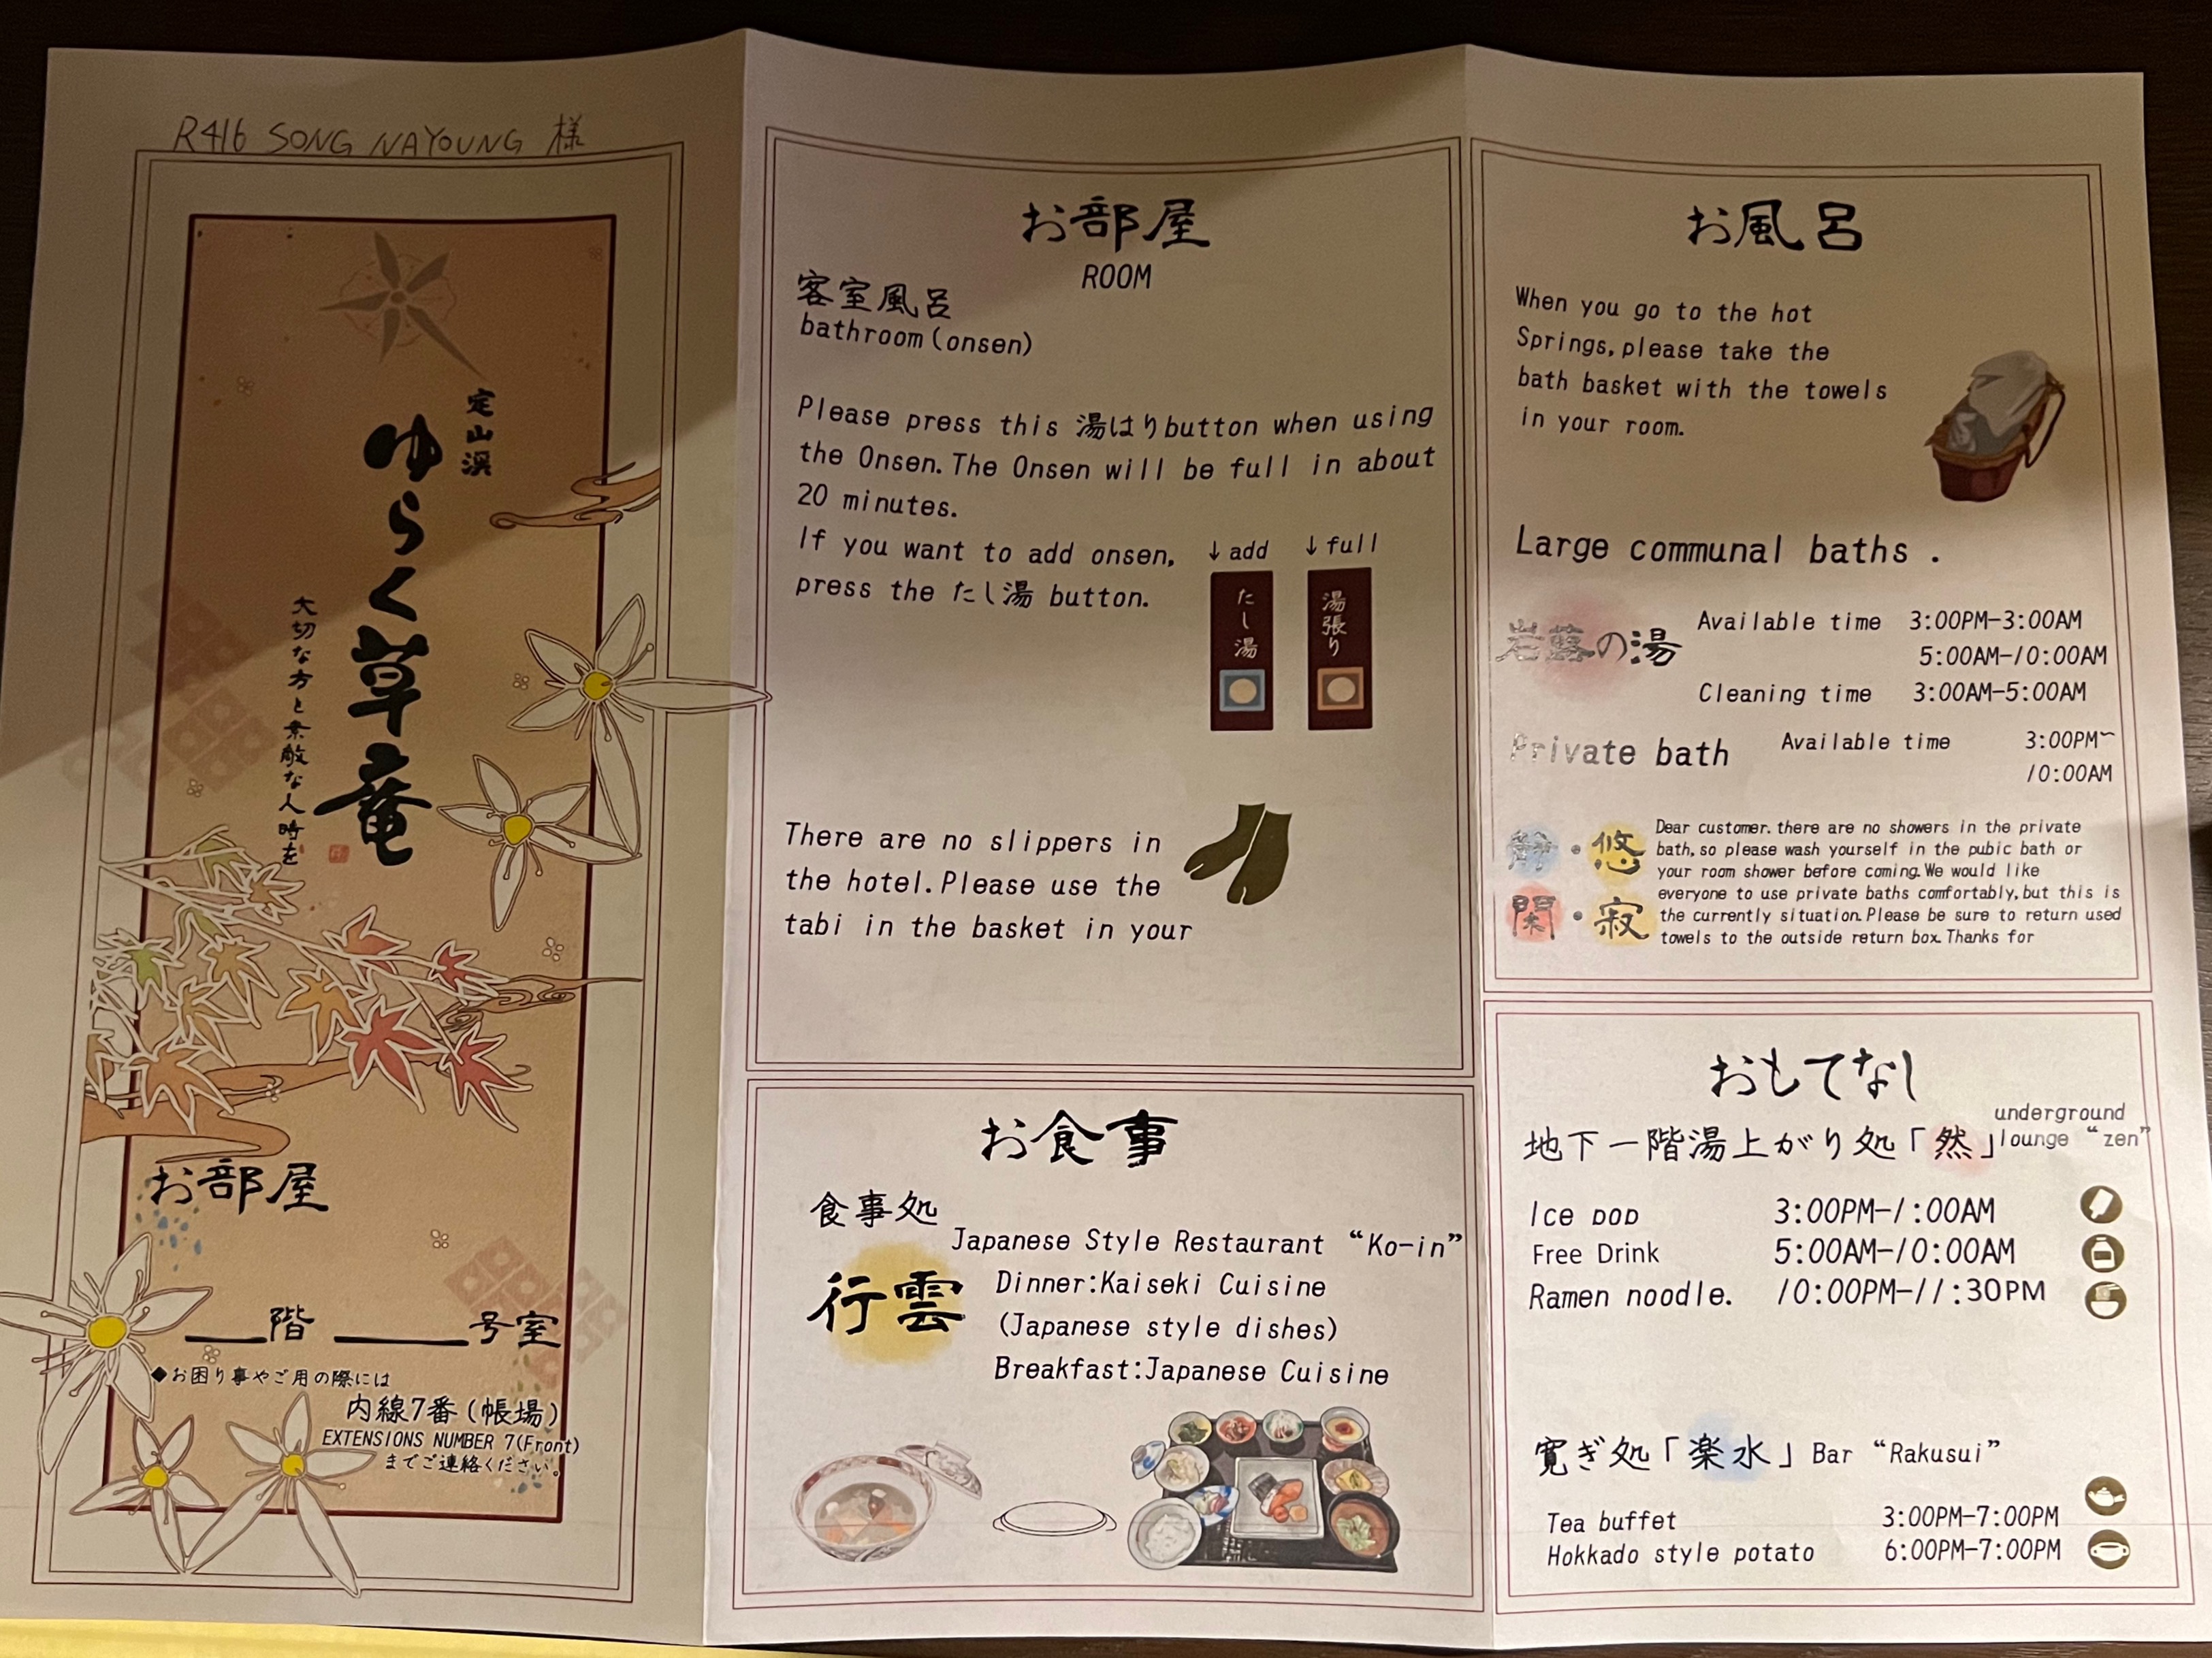 R416 SONG NAYOUNG 様
定山渓
ゆらく草菴
大切な方と素敵な人時を
お部屋
階 号室
◆お困り事やご用の際には
内線7番(帳場)
EXTENSIONS NUMBER 7(Front)
までご連絡ください。
お部屋
ROOM
客室風呂
bathroom(onsen)
Please press this 湯はりbutton when using
the Onsen.The Onsen will be full in about
20 minutes.
If you want to add onsen,
press the たし湯 button.
↓add ↓full
たし湯
湯張り
There are no slippers in
the hotel.Please use the
tabi in the basket in your
お食事
食事処
行雲
Japanese Style Restaurant “Ko-in”
Dinner:Kaiseki Cuisine
(Japanese style dishes)
Breakfast:Japanese Cuisine
お風呂
When you go to the hot
Springs,please take the
bath basket with the towels
in your room.
Large communal baths .
の湯
Available time 3:00PM-3:00AM
5:00AM-10:00AM
Cleaning time 3:00AM-5:00AM
Private bath Available time 3:00PM~
10:00AM
静・悠
閑・寂
Dear customer. there are no showers in the private
bath,so please wash yourself in the pubic bath or
your room shower before coming.We would like
everyone to use private baths comfortably,but this is
the currently situation.Please be sure to return used
towels to the outside return box.Thanks for
おもてなし
地下一階湯上がり処「然」underground
lounge “zen”
Ice pop 3:00PM-1:00AM
Free Drink 5:00AM-10:00AM
Ramen noodle. 10:00PM-11:30PM
寛ぎ処「楽水」Bar “Rakusui”
Tea buffet 3:00PM-7:00PM
Hokkado style potato 6:00PM-7:00PM